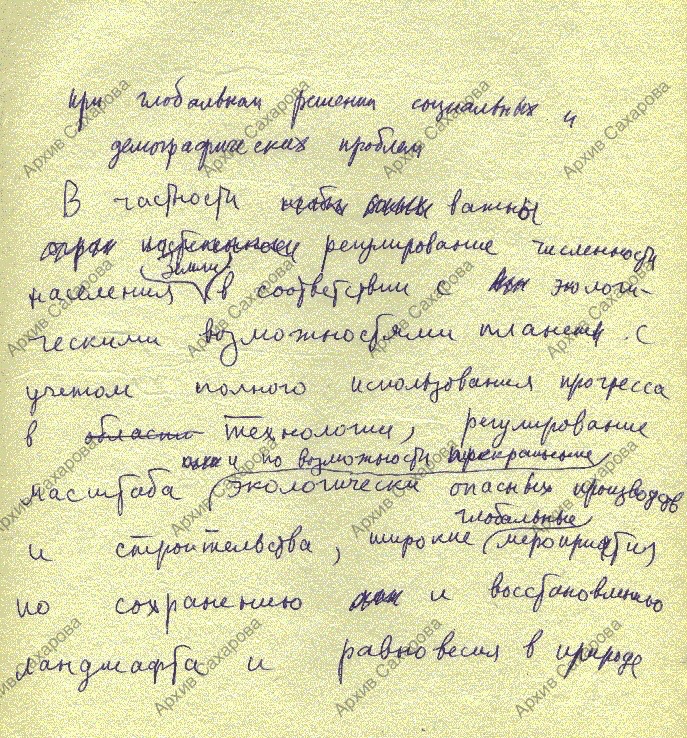 при глобальном решении социальных и
демографических проблем
В частности важны
регулирование численности
населения Земли в соответствии с экологи-
ческими возможностями планеты с
учетом полного использования прогресса
в области технологии, регулирование
и по возможности прекращение
масштаба экологически опасных производств
глобальные
и строительства, широкие мероприятия
по сохранению и восстановлению
ландшафта и равновесия в природе
Архив Сахарова